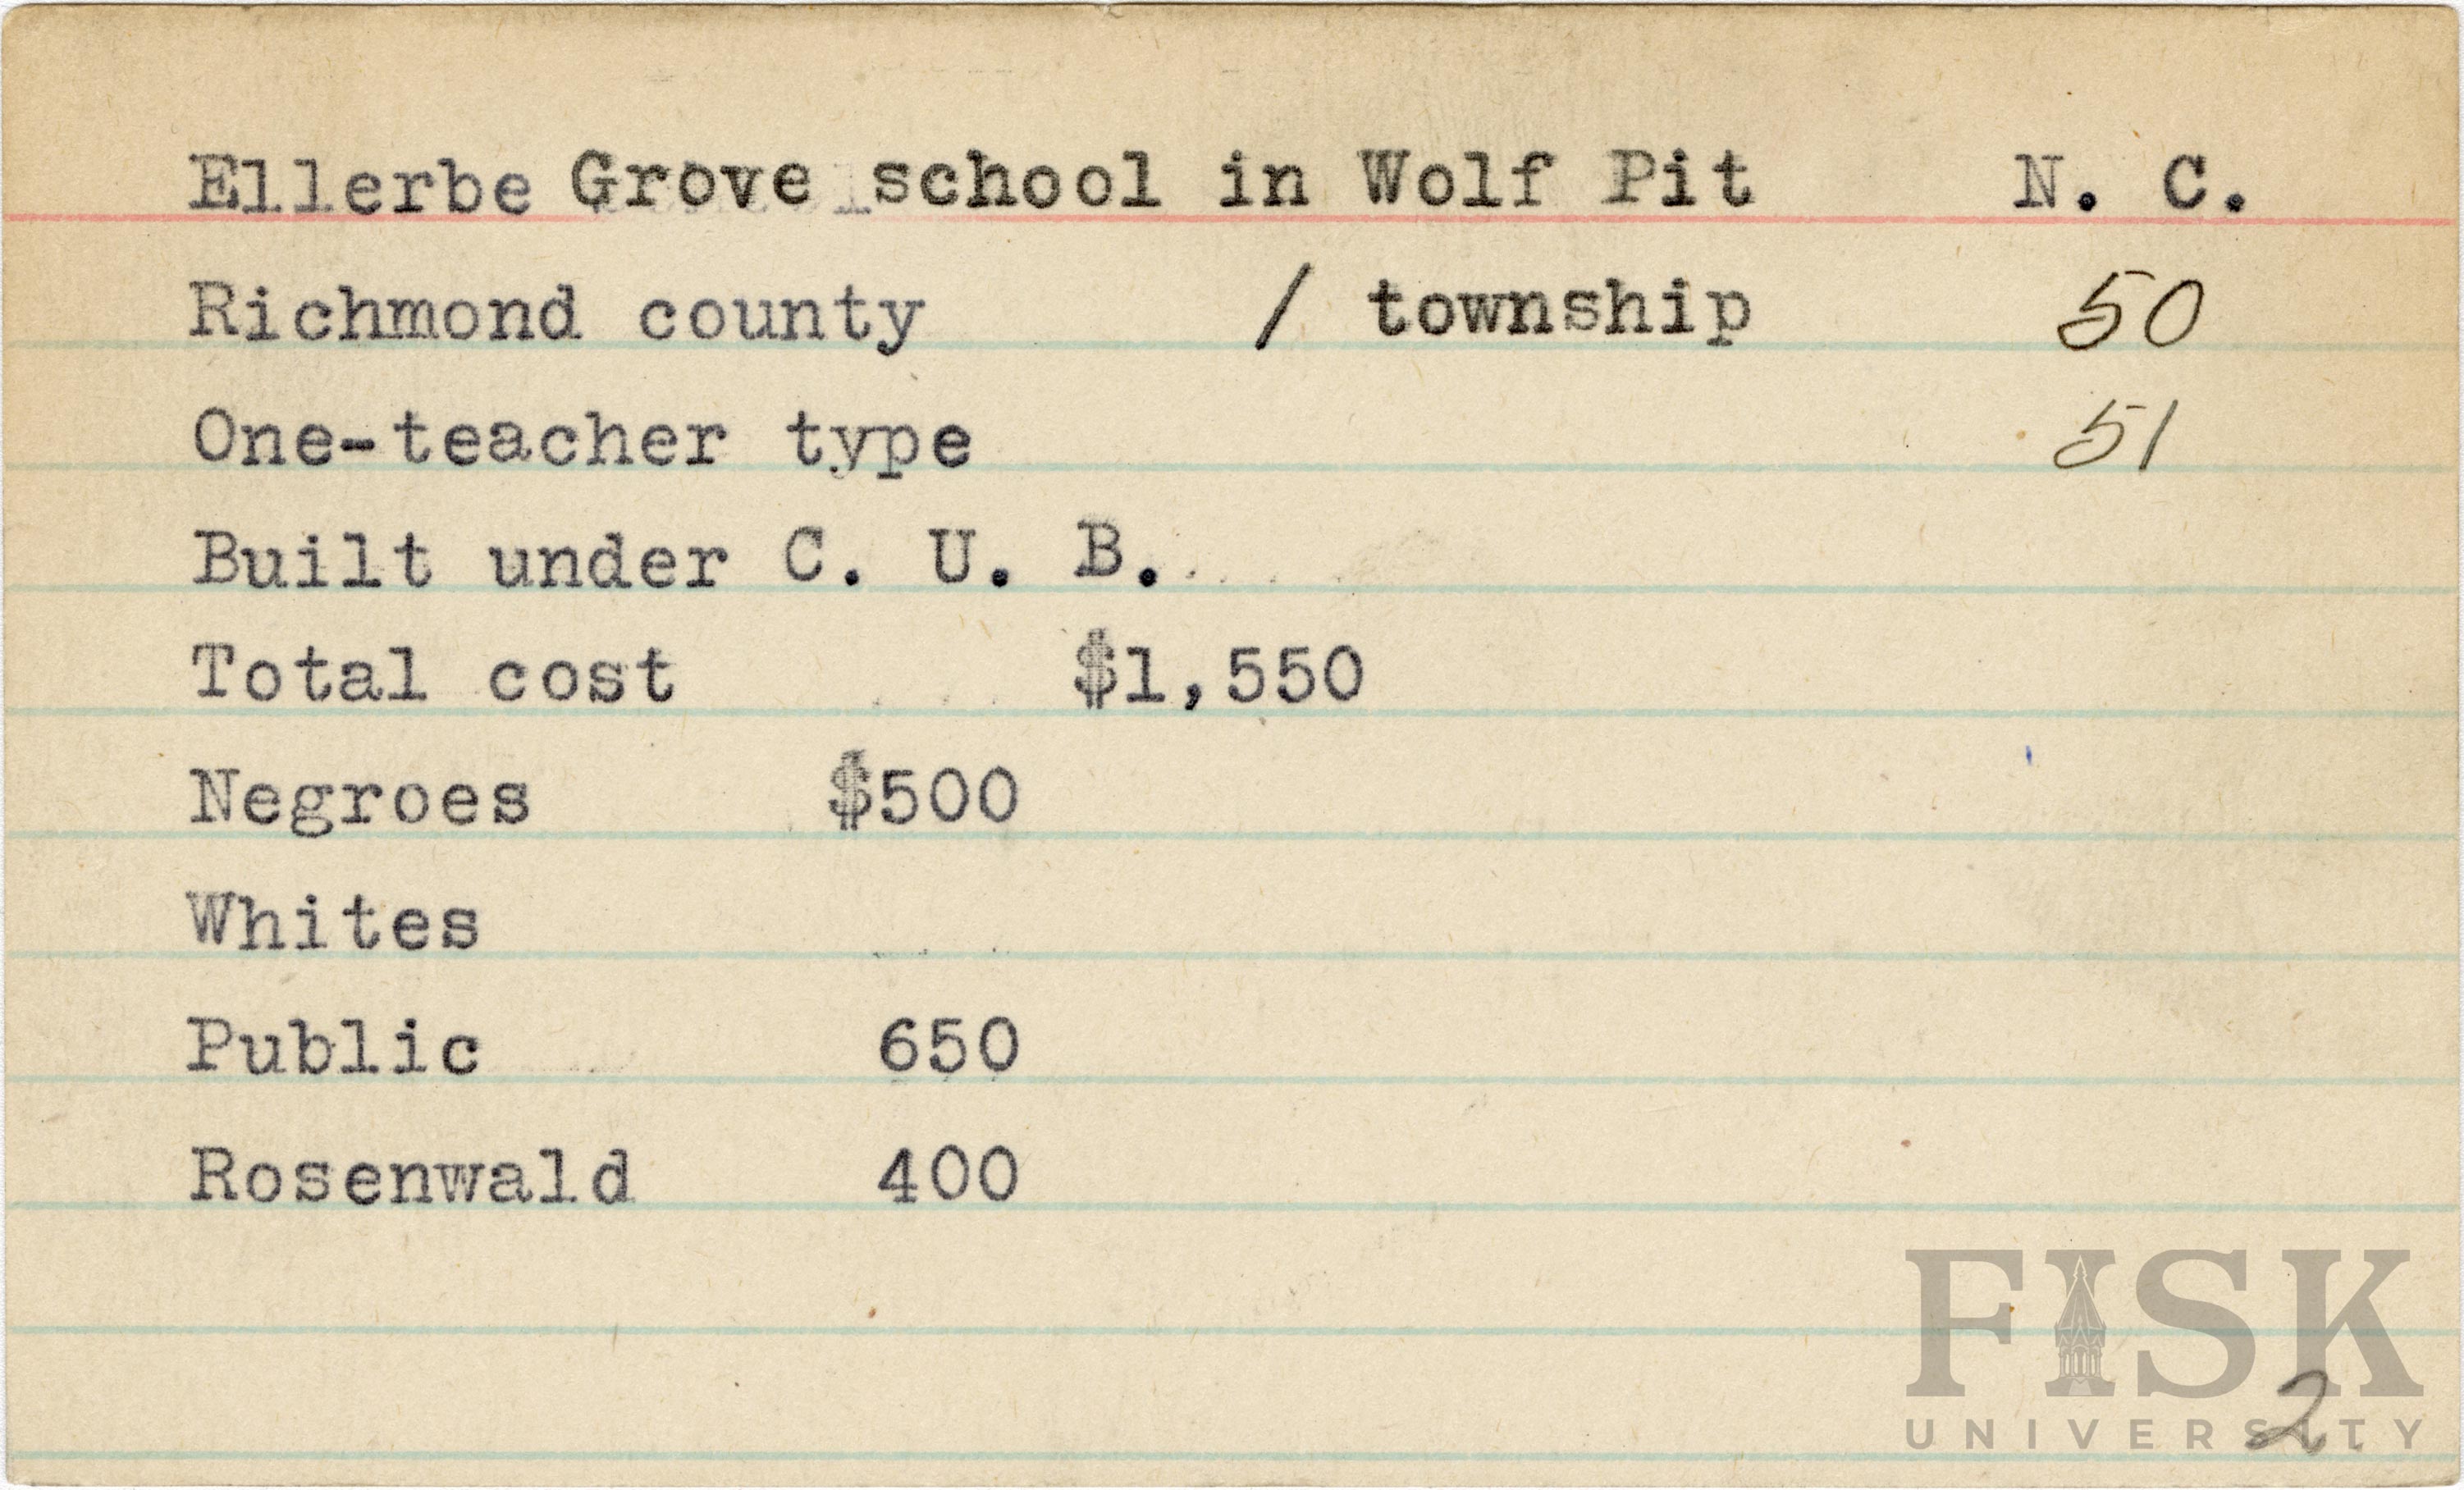 Ellerbe Grove school in Wolf Pit N. C.
Richmond county / township 50
One-teacher type 51
Built under C. U. B.
Total cost $1,550
Negroes $500
Whites
Public 650
Rosenwald 400
FISK
UNIVERSITY
2